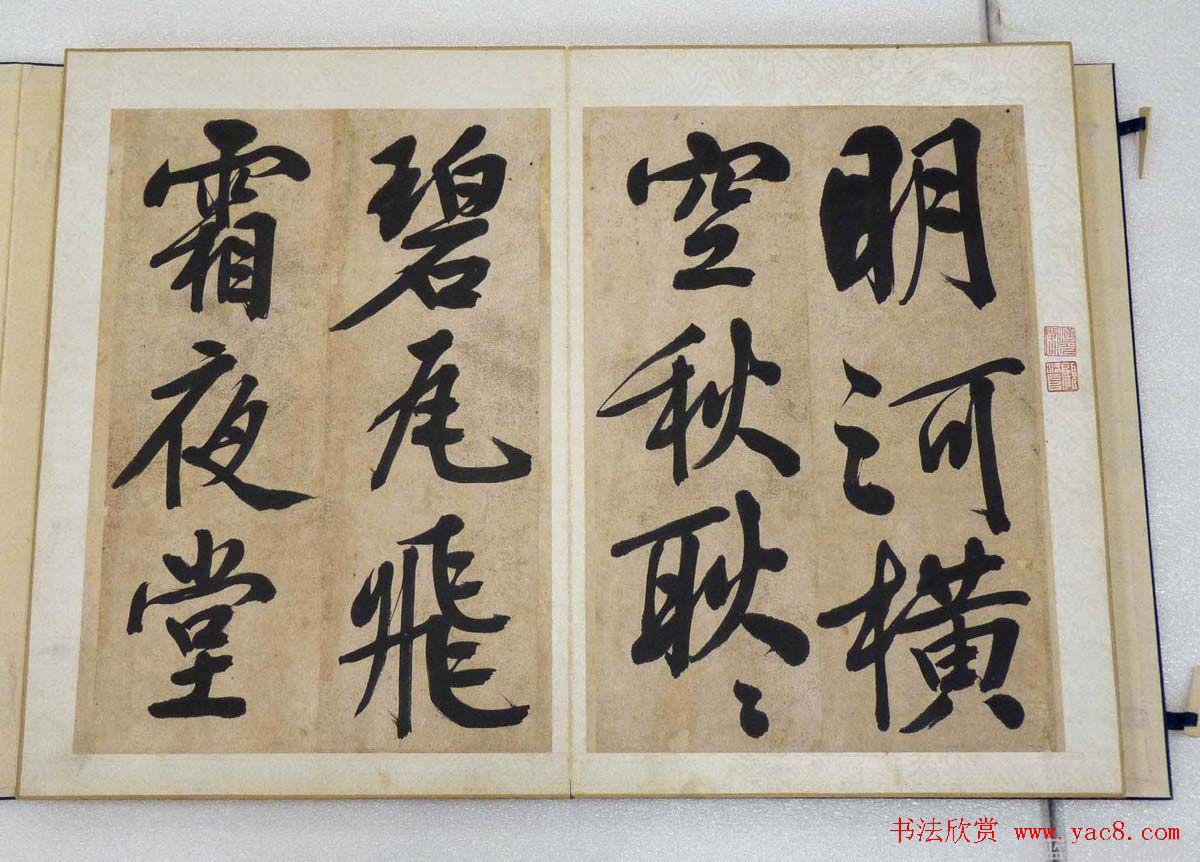 明河橫
空秋耿〻
碧尾飛
霜夜堂
书法欣赏 www.yac8.com